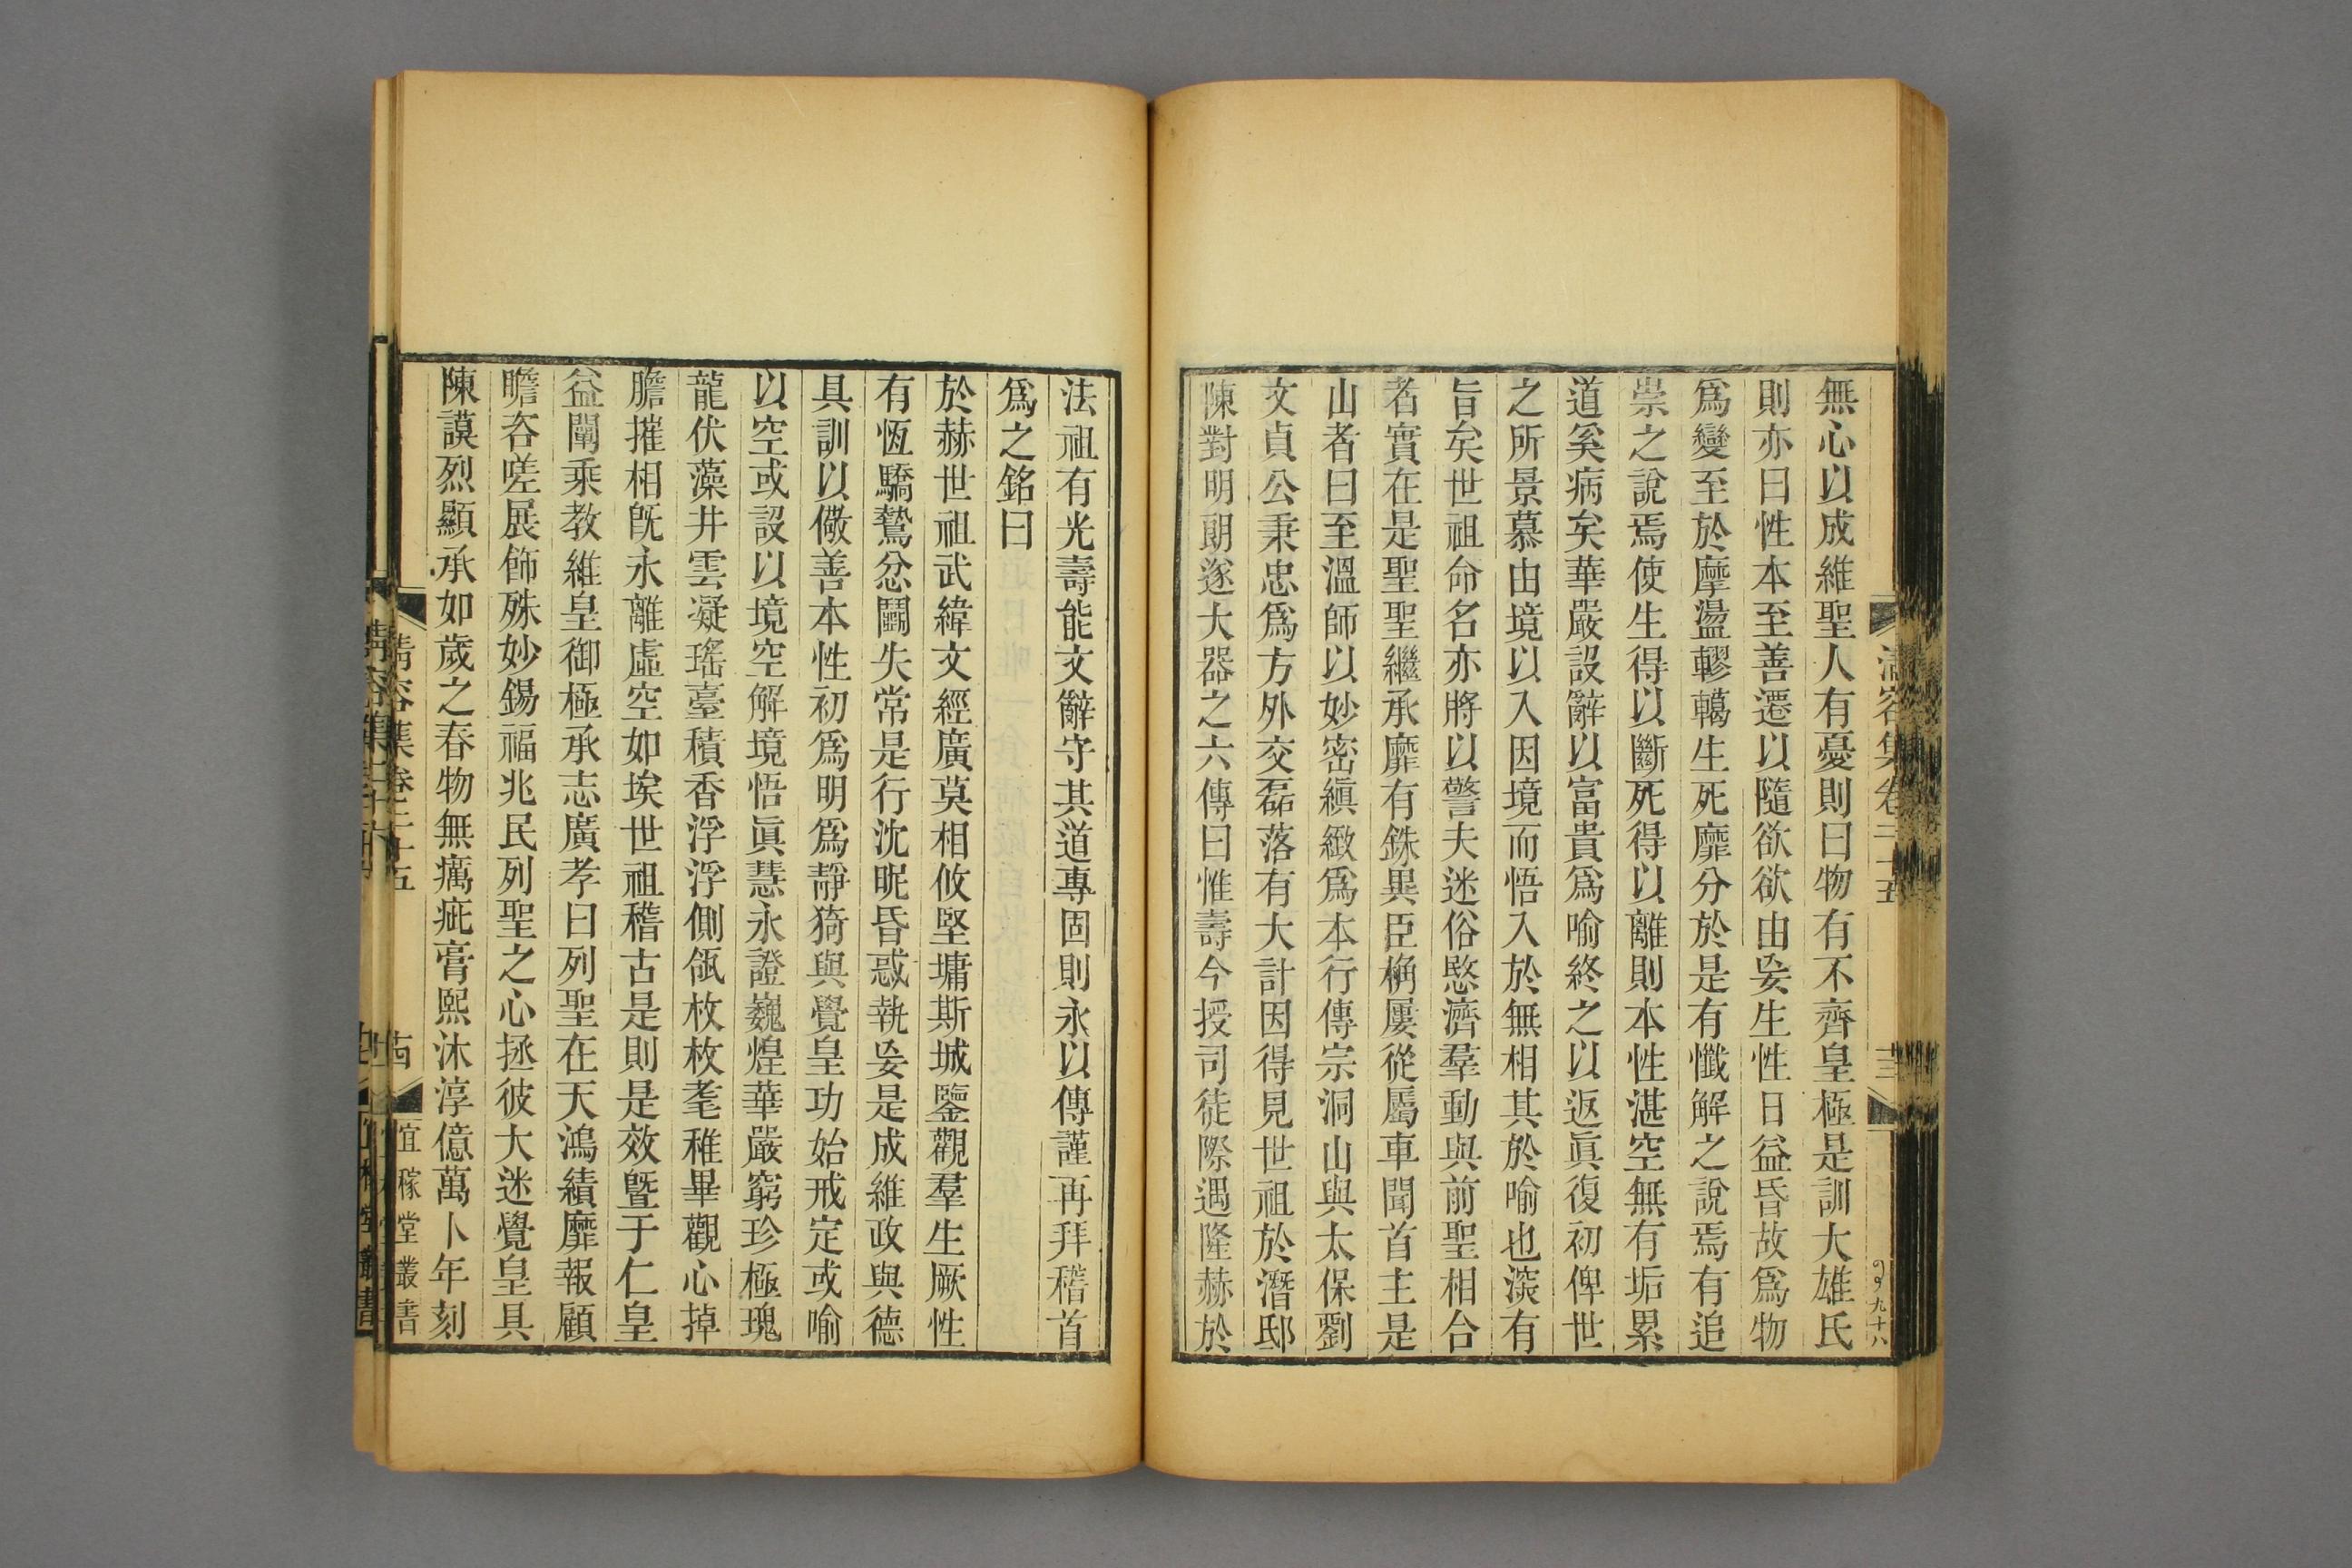 清容集卷二十五
十三
無心以成維聖人有憂則曰物有不齊皇極是訓大雄氏
則亦曰性本至善遷以隨欲欲由妄生性日益昏故爲物
爲變至於摩盪轇轕生死靡分於是有懺解之說焉有追
崇之說焉使生得以斷死得以離則本性湛空無有垢累
道奚病矣華嚴設辭以富貴爲喻終之以返眞復初俾世
之所景慕由境以入因境而悟入於無相其於喻也深有
旨矣世祖命名亦將以警夫迷俗愍濟羣動與前聖相合
者實在是聖聖繼承靡有銖異臣桷屢從屬車聞首主是
山者曰至溫師以妙密縝緻爲本行傳宗洞山與太保劉
文貞公秉忠爲方外交磊落有大計因得見世祖於潛邸
陳對明朗遂大器之六傳曰惟壽今授司徒際遇隆赫於
法祖有光壽能文辭守其道專固則永以傳謹再拜稽首
爲之銘曰
於赫世祖武緯文經廣莫相攸堅墉斯城鑒觀羣生厥性
有恆驕鷙忿鬭失常是行沈昵昏惑執妄是成維政與德
具訓以儆善本性初爲明爲靜猗與覺皇功始戒定或喻
以空或設以境空解境悟眞慧永證巍煌華嚴窮珍極瑰
龍伏藻井雲凝瑤臺積香浮浮側佤枚枚耄稚畢觀心掉
膽摧相旣永離虛空如埃世祖稽古是則是效曁于仁皇
益闡乘教維皇御極承志廣孝曰列聖在天鴻績靡報顧
瞻咨嗟展飾殊妙錫福兆民列聖之心拯彼大迷覺皇具
陳謨烈顯承如歲之春物無癘疵膏熙沐淳億萬卜年刻
清容集卷二十五
十四
宜稼堂叢書